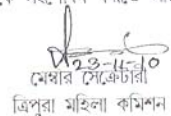 23-11-10
মেম্বার সেক্রেটারী
ত্রিপুরা মহিলা কমিশন